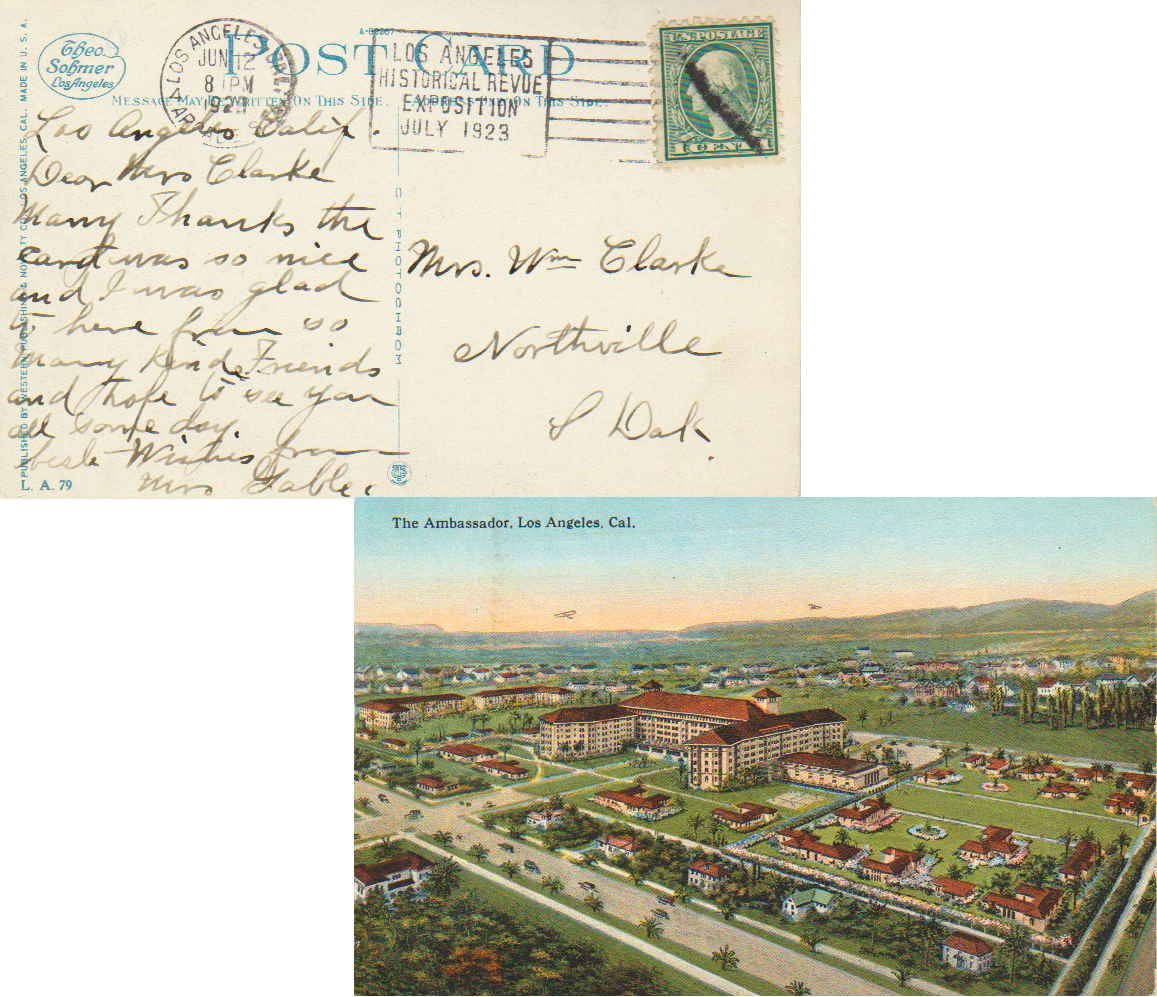 Theo.
Sohmer
Los Angeles
A-82267
POST CARD
MESSAGE MAY BE WRITTEN ON THIS SIDE.
ADDRESS ONLY ON THIS SIDE.
LOS ANGELES
JUN 12
8 PM
LOS ANGELES
HISTORICAL REVUE
EXPOSITION
JULY 1923
U.S. POSTAGE
1 CENT 1
Los Angeles Calif.
Dear Mrs Clarke
Many Thanks the
card was so nice
and I was glad
to here from so
many Kind Friends
and Ihope to see you
all some day.
best Wishes from
Mrs Gable.
Mrs. Wm Clarke
Northville
S Dak.
PUBLISHED BY WESTERN PUBLISHING & NOVELTY CO., LOS ANGELES, CAL. MADE IN U. S. A.
PHOTOCHROM
L. A. 79
The Ambassador, Los Angeles, Cal.